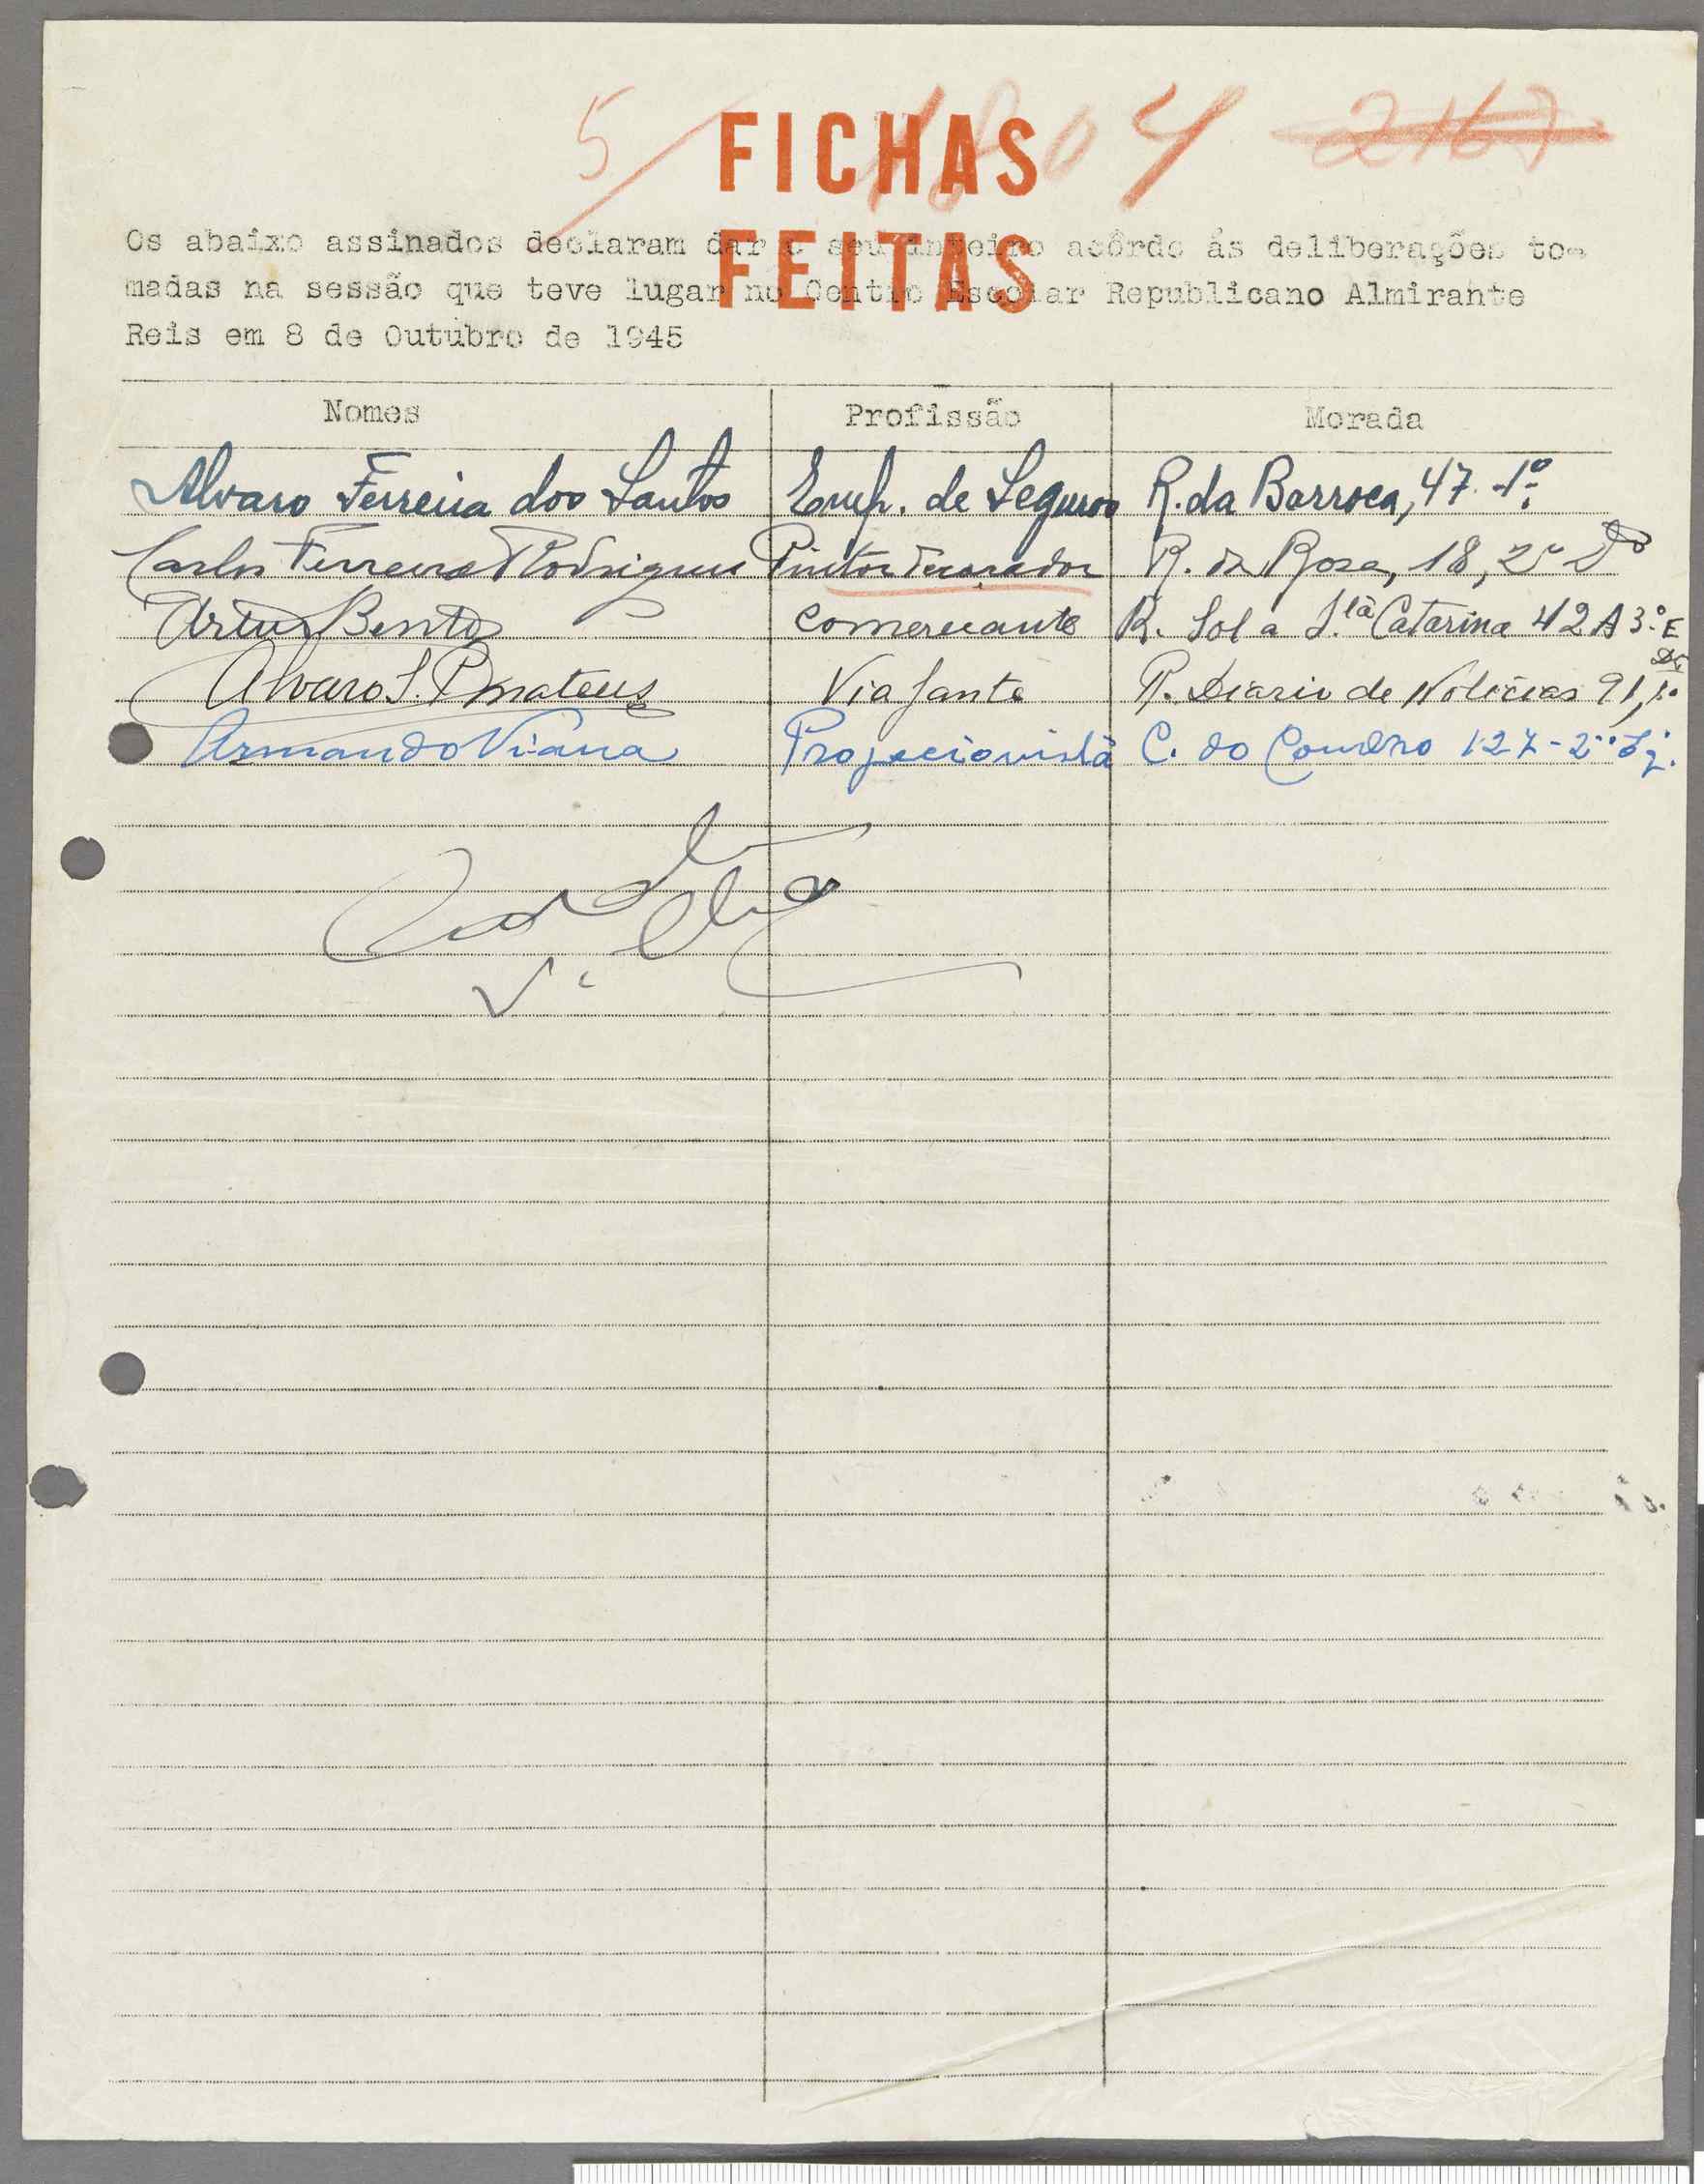 5 1804 2167
FICHAS
FEITAS
Os abaixo assinados declaram dar o seu inteiro acôrdo ás deliberações to-
madas na sessão que teve lugar no Centro Escolar Republicano Almirante
Reis em 8 de Outubro de 1945
Nomes Profissão Morada
Alvaro Ferreira dos Santos Emp. de Seguros R. da Barroca, 47-1º
Carlos Ferreira Rodrigues Pintor Decorador R. da Rosa, 18, 2º Dº
Artur Bento Comerciante R. Sol a S.ta Catarina 42 A 3º E
Alvaro S. P. Mateus Viajante R. Diario de Noticias 91, 1º Dt
Armando Viana Projecionista C. do Combro 127-2º